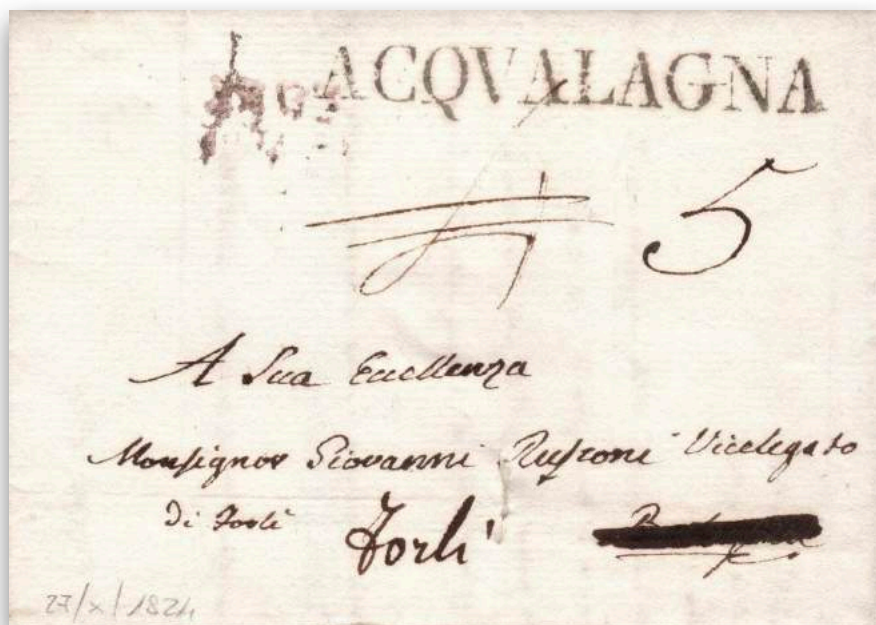 ACQVALAGNA
5
A Sua Eccellenza
Monsignor Giovanni Vicelegato
di Forlì Forlì
27/X/1824